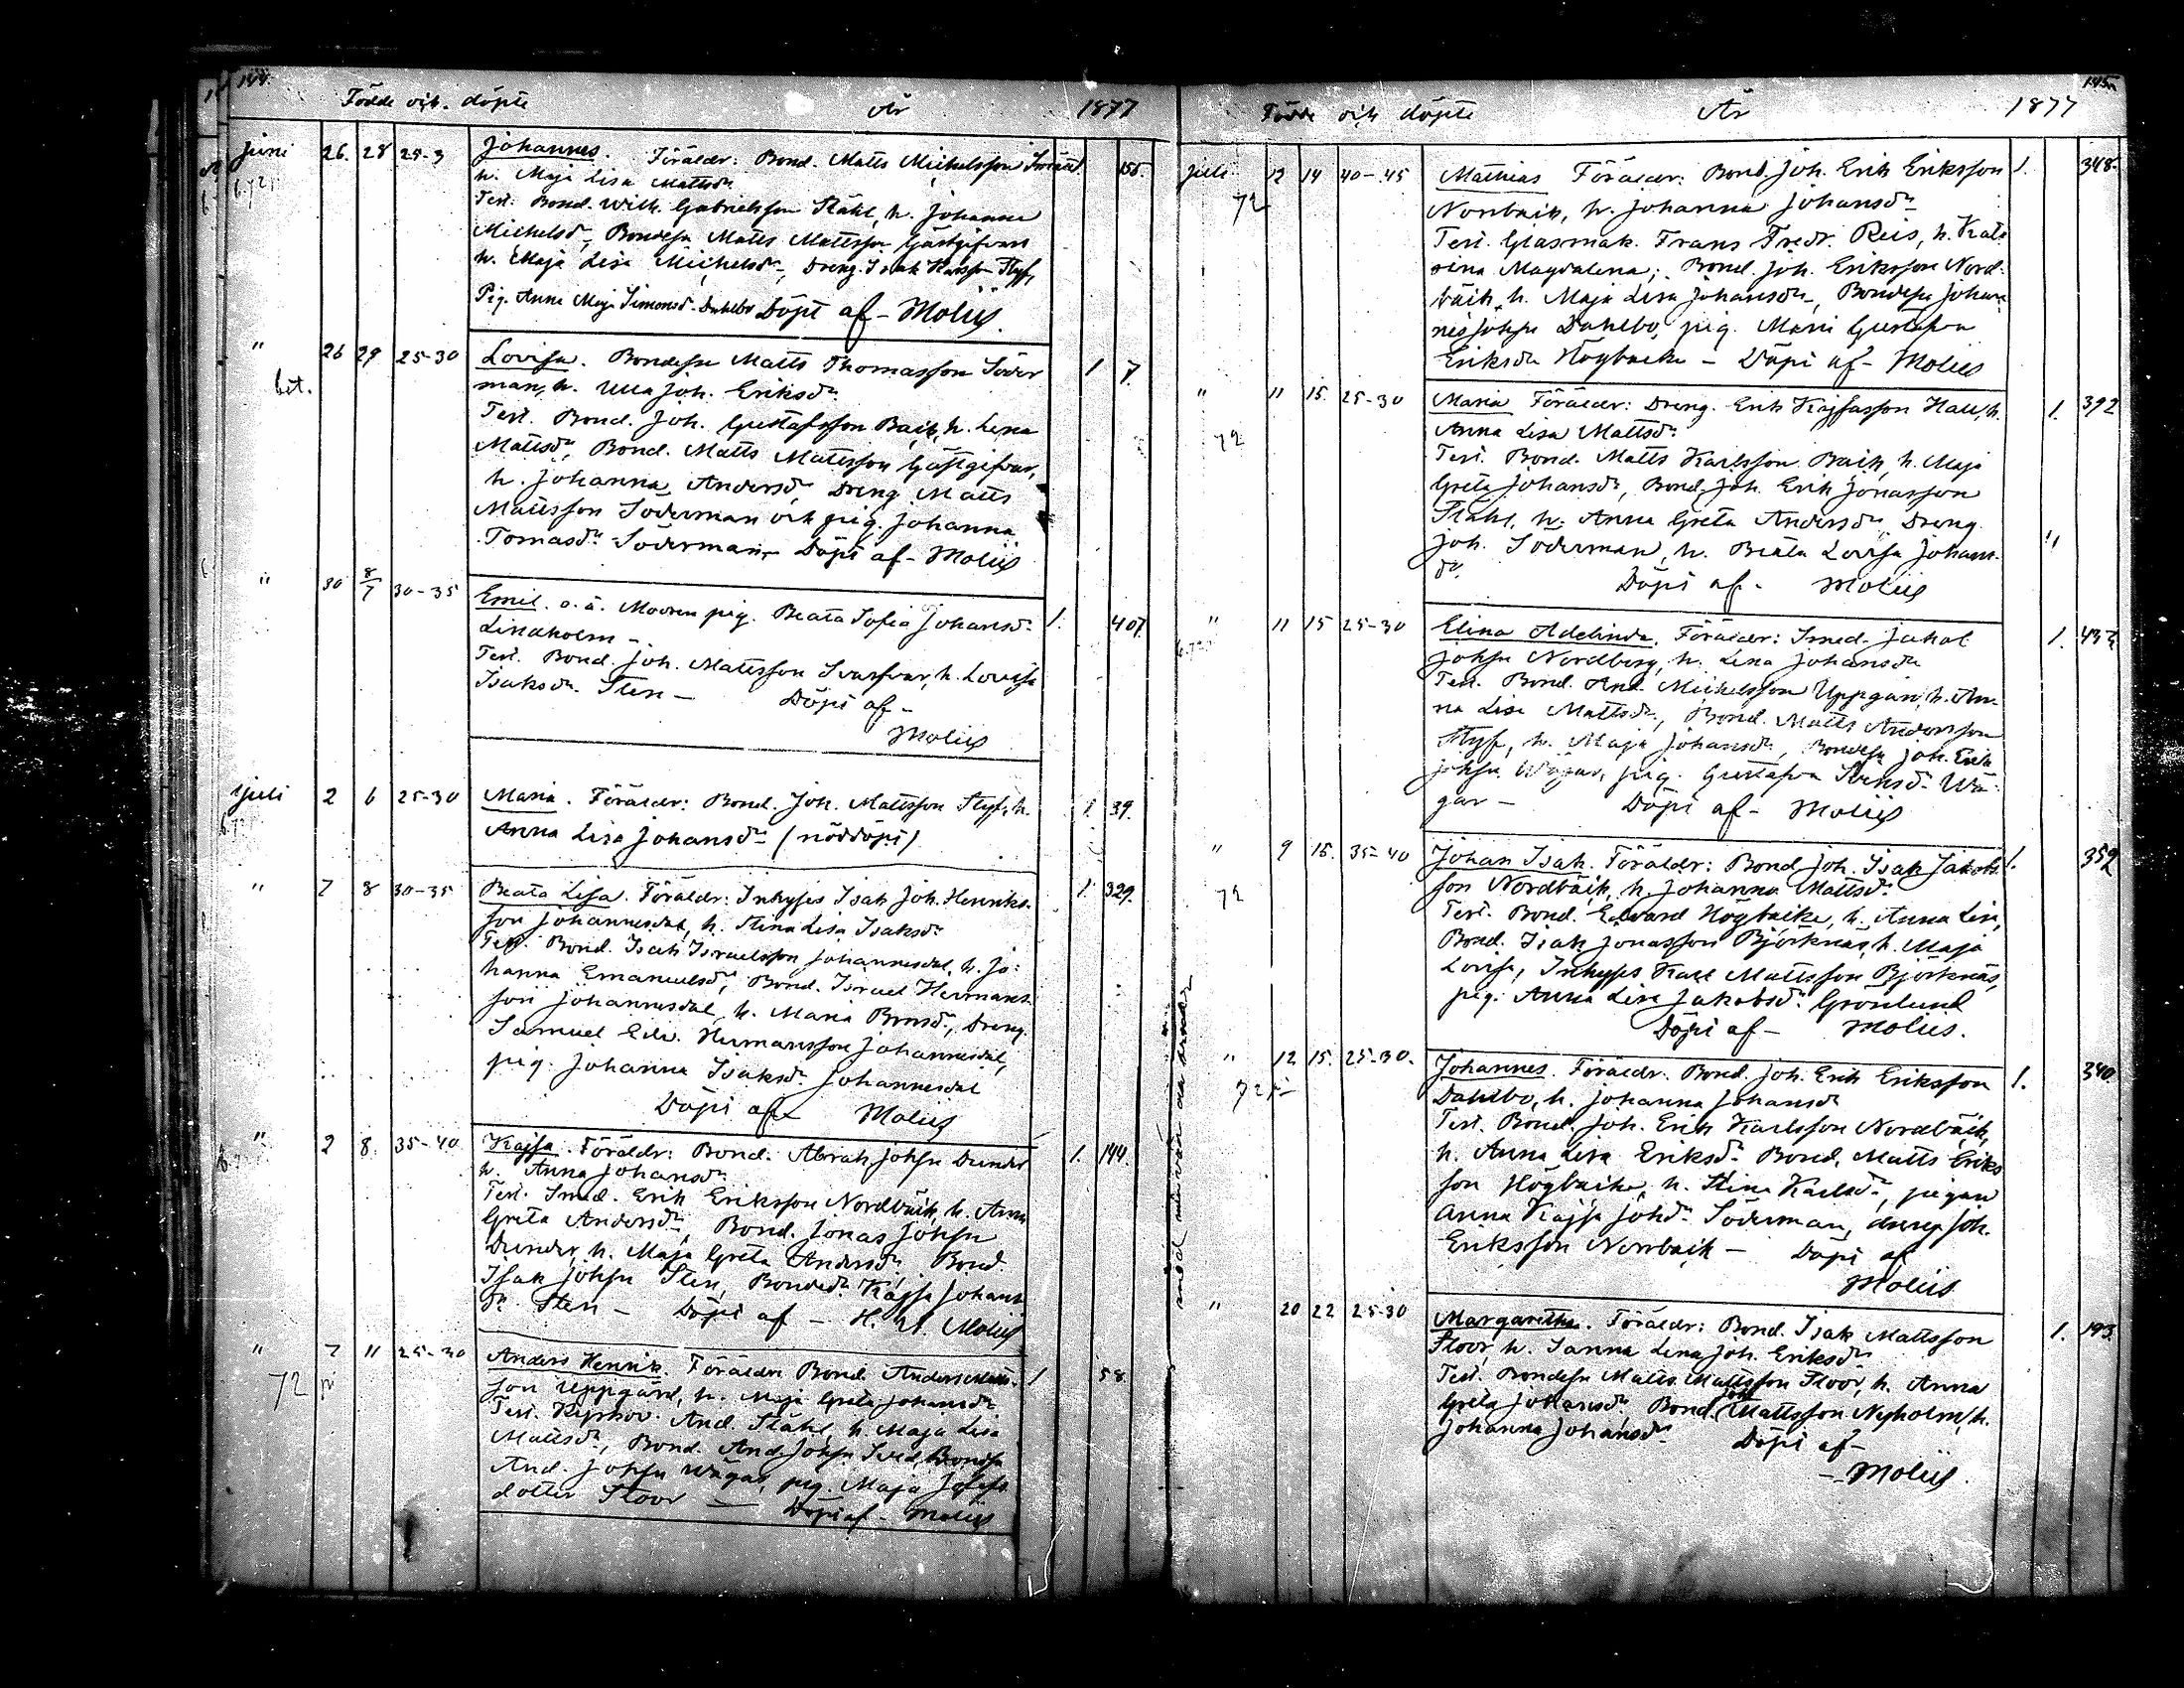 144.
Födde och döpte År 1877
juni 26. 28 25-3 Johannes. Föräldr: Bond. Matts Michelsson 1. 155.
h. Maja Lisa Mattsdr
Test. Bond. Wilh. Gabrielsson Ståhl, h. Johanna
Michelsdr, Bondesn Matts Mattsson Gästgifvars
h. Maja Lisa Michelsdr, Dreng. Isak Karlsson Styf,
Pig. Anna Maja Simonsdr Dahlbo Döpt af - Moliis.
" 26 29 25-30 Lovisa. Bondesn Matts Thomasson Söder 1 7.
bet. man, h. Ulla Joh. Eriksdr
Test. Bond. Joh. Gustafsson Back, h. Lena
Mattsdr, Bond. Matts Mattsson Gästgifvar,
h. Johanna Andersdr, Dreng Matts
Mattsson Söderman och pig. Johanna
Tomasdr Söderman - Döpt af - Moliis
" 30 8/7 30-35 Emil. o.ä. Modren pig. Beata Sofia Johansdr 1. 407.
Lindholm -
Test. Bond. Joh. Mattsson Svarfvar, h. Lovisa
Isaksdr Sten - Döpt af -
Moliis
juli 2 6 25-30 Maria. Föräldr: Bond. Joh. Mattsson Styf, h. 1. 39.
Anna Lisa Johansdr (nöddöpt)
" 7 8 30-35 Beata Lisa. Föräldr: Inhyses Isak Joh. Henriks- 1. 329.
son Johannesdal, h. Stina Lisa Isaksdr
Test. Bond. Isak Israelsson Johannesdal, h. Jo-
hanna Emanuelsdr, Bond. Israel Hermans-
son Johannesdal, h. Maria Brusdr, Dreng.
Samuel Edv. Hermansson Johannesdal,
pig. Johanna Isaksdr Johannesdal
Döpt af - Moliis
" 2 8. 35-40 Kajsa. Föräldr: Bond. Abrah Johsn Dunder 1. 144.
h. Anna Johansdr
Test. Smed. Erik Eriksson Nordbäck, h. Anna
Greta Andersdr, Bond. Jonas Johsn
Dunder, h. Maja Greta Andersdr, Bond.
Isak Johsn Sten, Bondedr Kajsa Johans
dr Sten - Döpt af - H. A. Moliis
" 7 11 25-30 Anders Henrik. Föräldr: Bond. Anders Matts- 1 58
72 son Uppgård, h. Maja Greta Johansdr
Test. And. Ståhl, h. Maja Lisa
Mattsdr, Bond. And. Johsn Bondsn
And. Johsn Wägar, pig. Maja Josefs
dotter Stoor — Döpt af - Moliis
145.
Födde och döpte År 1877
juli 12 14 40-45 Mathias Föräldr: Bond. Joh. Erik Eriksson 1. 348.
72 Norrback, h. Johanna Johansdr
Test. Glasmak. Frans Fredr. Reis, h. Kata
rina Magdalena; Bond. Joh. Eriksson Nord-
bäck, h. Maja Lisa Johansdr, Bondesn Johan
nes Johsn Dahlbo, pig. Maria Gustafva
Eriksdr Högbacka - Döpt af - Moliis
" 11 15. 25-30 Maria Föräldr: Dreng. Erik Kajsasson Hall, h. 1. 392
72 Anna Lisa Mattsdr
Test. Bond. Matts Karlsson Back, h. Maja
Greta Johansdr, Bond. Joh. Erik Jonasson
Ståhl, h. Anna Greta Andersdr, Dreng.
Joh. Söderman, h. Beata Lovisa Johans-
dr. Döpt af - Moliis
" 11 15 25-30 Elina Adelinda. Föräldr: Smed. Jakob 1.
Johsn Nordberg, h. Lena Johansdr
Test. Bond. And. Michelsson Uppgård, h. An-
na Lisa Mattsdr, Bond. Matts Andersson
Styf, h. Maja Johansdr, Bondesn Joh. Erik
Johsn Wägar, pig. Gustafva Svensdr Wä-
gar - Döpt af - Moliis
" 9 15. 35-40 Johan Isak. Föräldr: Bond. Joh. Isak Jakobs- 1. 352
72 son Nordbäck, h. Johanna Mattsdr
Test. Bond. Edvard Högbacke, h. Anna Lisa,
Bond. Isak Jonasson Björknäs, h. Maja
Lovisa, Inhyses Karl Mattsson Björknäs,
pig. Anna Lisa Jakobsdr Grönlund
Döpt af - Moliis.
" 12 15. 25-30. Johannes. Föräldr. Bond. Joh. Erik Eriksson 1. 340
72 Dahlbo, h. Johanna Johansdr
Test. Bond. Joh. Erik Karlsson Nordbäck,
h. Anna Lisa Eriksdr Bond. Matts Eriks
son Högbacke, h. Stina Karlsdr, pigan
Anna Kajsa Johdr Söderman, dreng Joh.
Eriksson Norrback - Döpt af
Moliis
" 20 22 25-30 Margaretha. Föräldr: Bond. Isak Mattsson 1. 193.
Stoor, h. Sanna Lena Joh. Eriksdr
Test. Bondesn Matts Mattsson Stoor, h. Anna
Greta Johansdr Bond. Joh Mattsson Nyholm, h.
Johanna Johansdr Döpt af -
- Moliis.